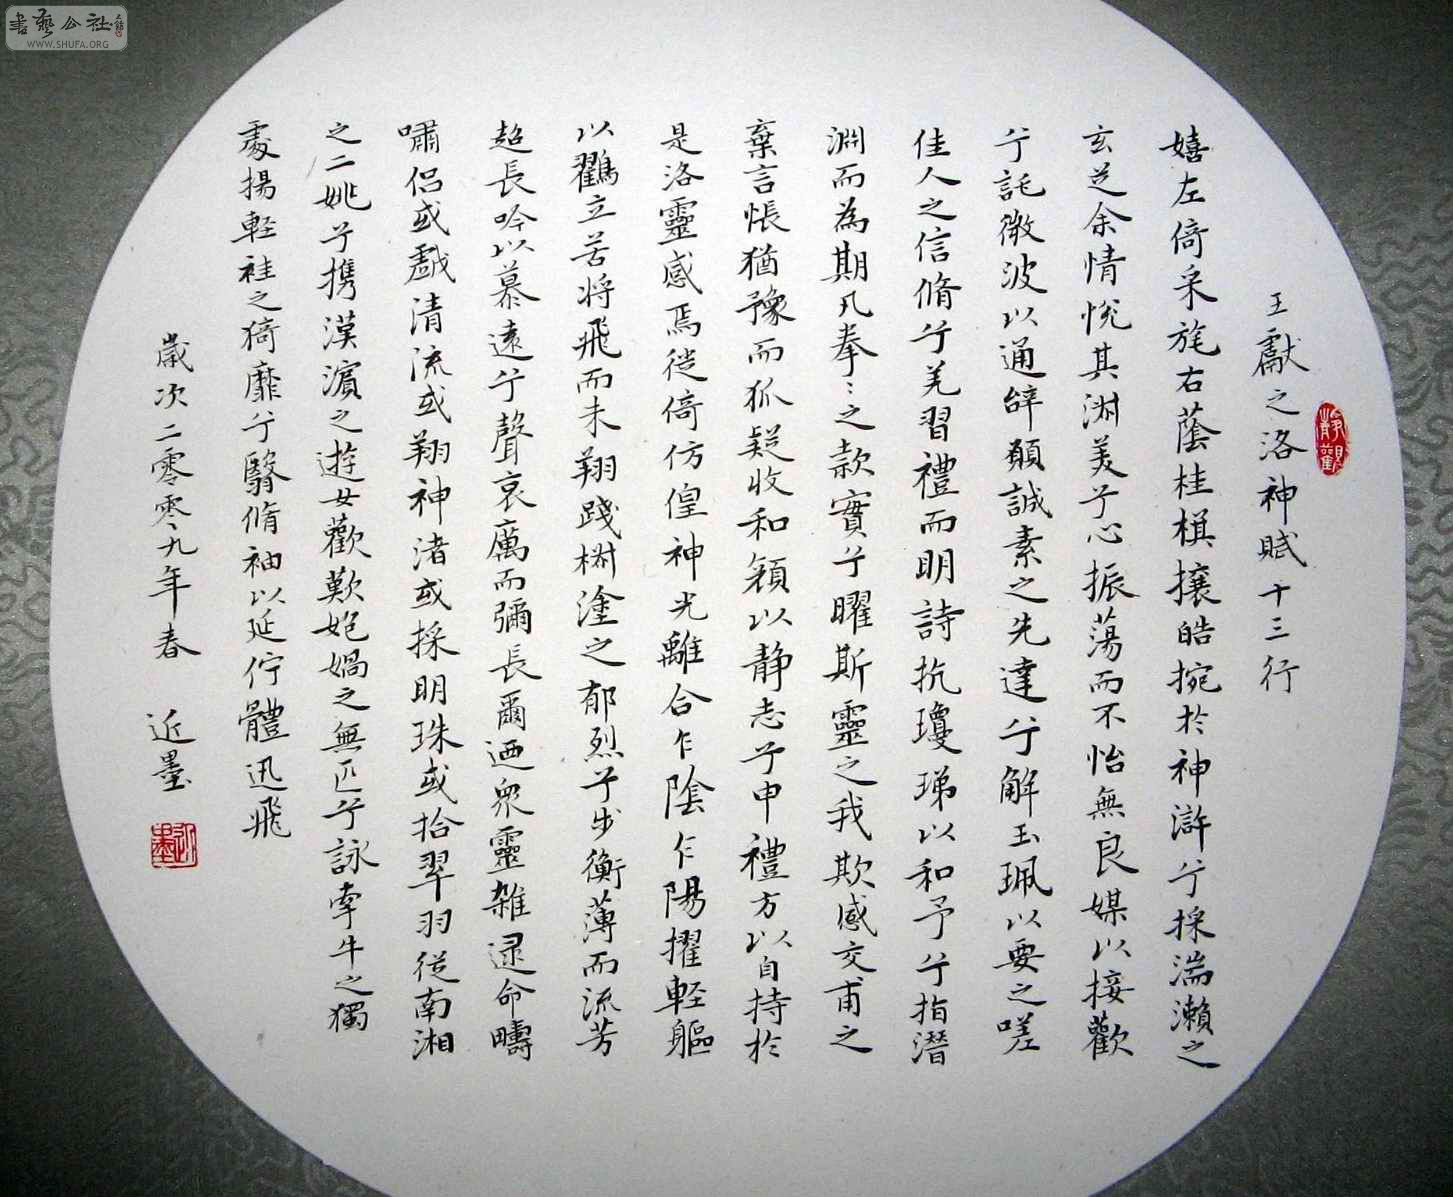 書藝公社
WWW.SHUFA.ORG
王獻之洛神賦十三行
靜觀
嬉左倚采旄右蔭桂棋攘皓捥於神滸兮採湍瀨之
玄芝余情悅其淵美兮心振蕩而不怡無良媒以接歡
兮託微波以通辭願誠素之先達兮解玉珮以要之嗟
佳人之信脩兮羌習禮而明詩抗瓊珶以和予兮指潛
淵而為期執拳〻之款實兮曜斯靈之我欺感交甫之
棄言悵猶豫而狐疑收和顏以靜志兮申禮方以自持於
是洛靈感焉徙倚仿偟神光離合乍陰乍陽擢輕軀
以鸖立若將飛而未翔踐椒塗之郁烈兮步衡薄而流芳
超長吟以慕遠兮聲哀厲而彌長爾迺眾靈雜遝命疇
嘯侶或戲清流或翔神渚或採明珠或拾翠羽從南湘
之二姚兮攜漢濱之遊女歡歎匏媧之無匹兮詠牽牛之獨
處揚輕袿之猗靡兮翳脩袖以延佇體迅飛
歲次二零零九年春 近墨
近墨